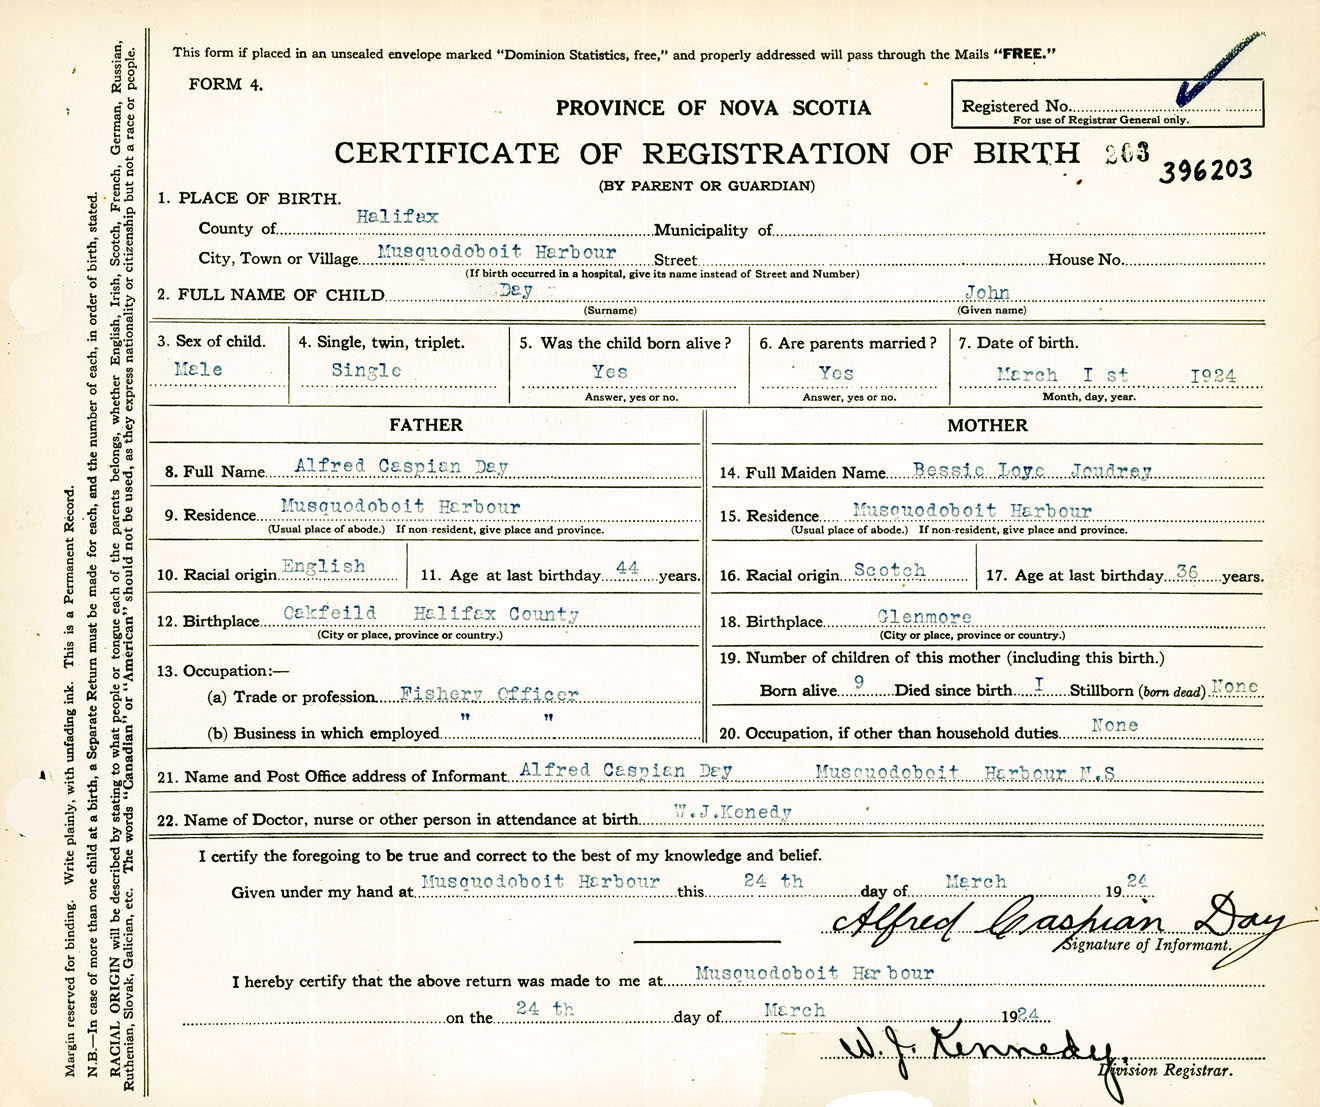 This form if placed in an unsealed envelope marked "Dominion Statistics, free," and properly addressed will pass through the Mails "FREE."
FORM 4.
Registered No.
For use of Registrar General only.
PROVINCE OF NOVA SCOTIA
CERTIFICATE OF REGISTRATION OF BIRTH 203 396203
(BY PARENT OR GUARDIAN)
1. PLACE OF BIRTH.
County of Halifax Municipality of
City, Town or Village Musquodoboit Harbour Street House No.
(If birth occurred in a hospital, give its name instead of Street and Number)
2. FULL NAME OF CHILD Day John
(Surname) (Given name)
3. Sex of child. 4. Single, twin, triplet. 5. Was the child born alive? 6. Are parents married? 7. Date of birth.
Male Single Yes Yes March I st I924
Answer, yes or no. Answer, yes or no. Month, day, year.
FATHER MOTHER
8. Full Name Alfred Caspian Day 14. Full Maiden Name Bessie Loye Joudrey
9. Residence Musquodoboit Harbour 15. Residence Musquodoboit Harbour
(Usual place of abode.) If non-resident, give place and province. (Usual place of abode.) If non-resident, give place and province.
10. Racial origin English 11. Age at last birthday 44 years. 16. Racial origin Scotch 17. Age at last birthday 36 years.
12. Birthplace Oakfeild Halifax County 18. Birthplace Glenmore
(City or place, province or country.) (City or place, province or country.)
13. Occupation:— 19. Number of children of this mother (including this birth.)
(a) Trade or profession Fishery Officer Born alive 9 Died since birth I Stillborn (born dead) None
(b) Business in which employed " " 20. Occupation, if other than household duties None
21. Name and Post Office address of Informant Alfred Caspian Day Musquodoboit Harbour N.S
22. Name of Doctor, nurse or other person in attendance at birth W.J.Kenedy
I certify the foregoing to be true and correct to the best of my knowledge and belief.
Given under my hand at Musquodoboit Harbour this 24 th day of March 1924
Alfred Caspian Day
Signature of Informant.
I hereby certify that the above return was made to me at Musquodoboit Harbour
on the 24 th day of March 1924
W. J. Kennedy.
Division Registrar.
Margin reserved for binding. Write plainly, with unfading ink. This is a Permanent Record.
N.B.—In case of more than one child at a birth, a Separate Return must be made for each, and the number of each, in order of birth, stated.
RACIAL ORIGIN will be described by stating to what people or tongue each of the parents belongs, whether English, Irish, Scotch, French, German, Russian,
Ruthenian, Slovak, Galician, etc. The words "Canadian" or "American" should not be used, as they express nationality or citizenship but not a race or people.